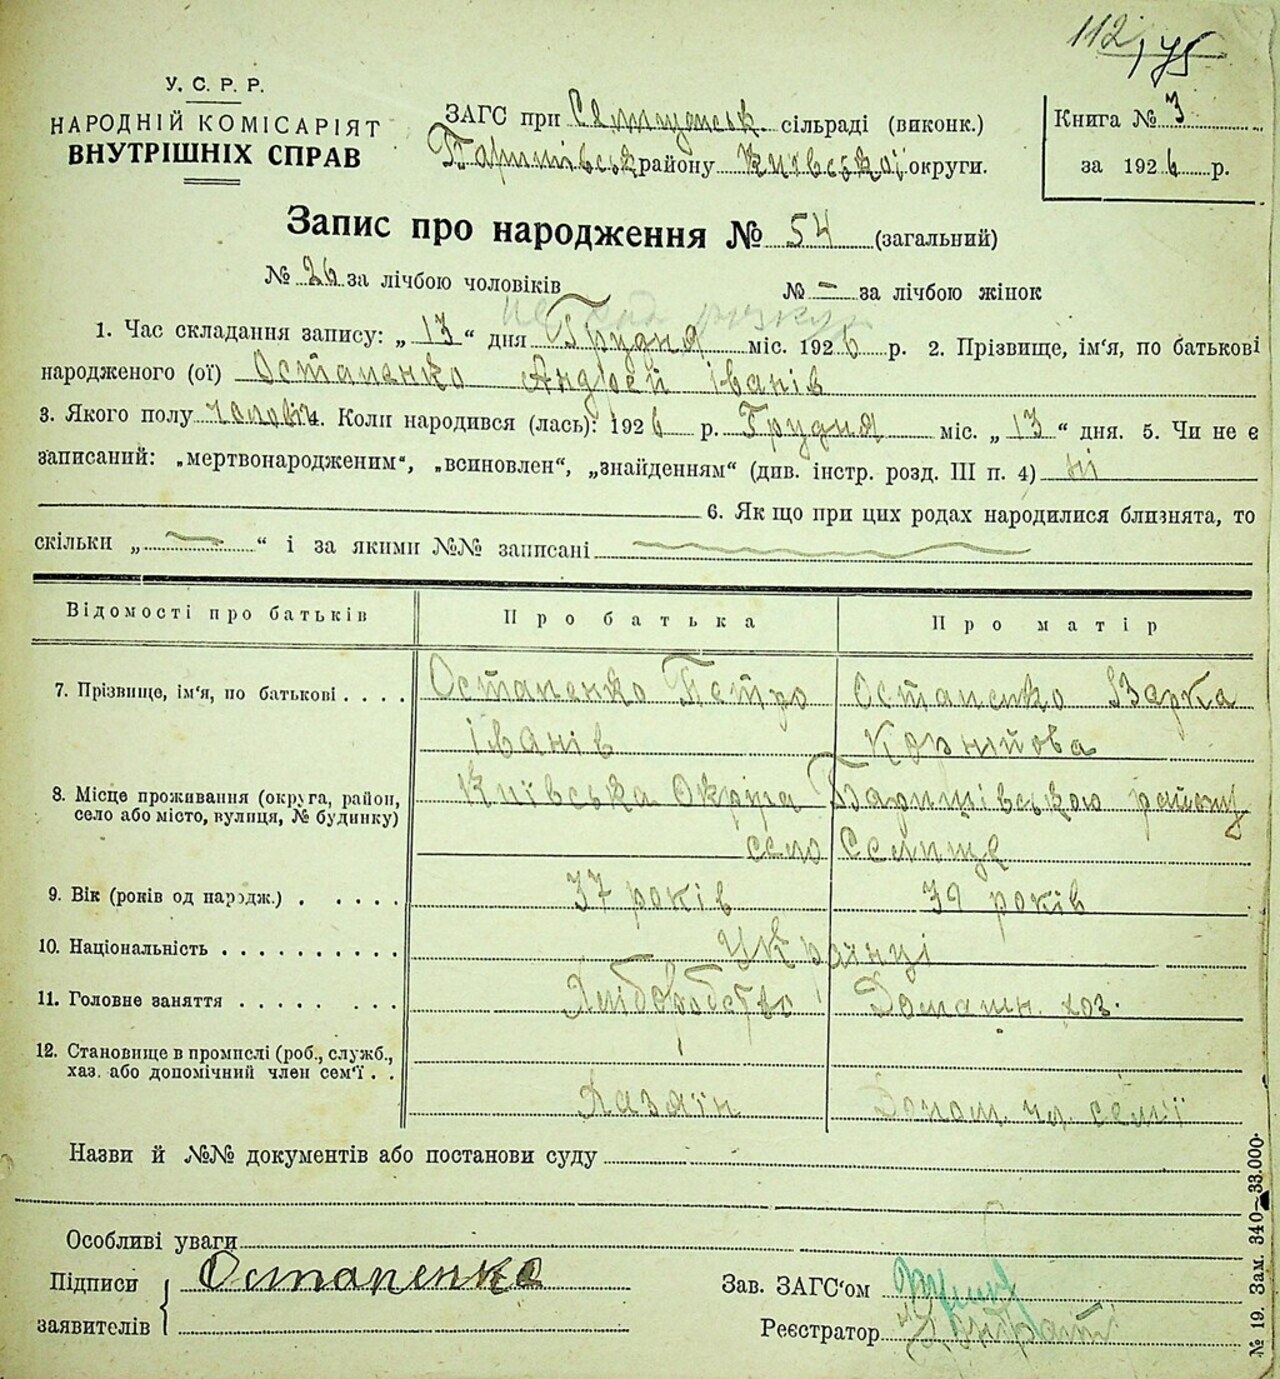 112
175
У. С. Р. Р.
НАРОДНІЙ КОМІСАРІЯТ
ВНУТРІШНІХ СПРАВ
ЗАГС при сільраді (виконк.)
району Київської округи.
Книга № 3
за 1926 р.
Запис про народження № 54 (загальний)
№ 26 за лічбою чоловіків № – за лічбою жінок
1. Час складання запису: „ 13 “ дня Грудня міс. 1926 р. 2. Прізвище, ім'я, по батькові
народженого (ої) Остапенко Андрей Іванів
3. Якого полу чоловіч 4. Коли народився (лась): 1926 р. Грудня міс. „ 13 “ дня. 5. Чи не є
записаний: „мертвонародженим“, „всиновлен“, „знайденням“ (див. інстр. розд. III п. 4) ні
6. Як що при цих родах народилися близнята, то
скільки „ “ і за якими №№ записані
Відомості про батьків Про батька Про матір
7. Прізвище, ім'я, по батькові . . . . Остапенко Петро Остапенко Варка
Іванів Корнійова
8. Місце проживання (округа, район, Київська Округа Баришівського району
село або місто, вулиця, № будинку) село Селище
9. Вік (років од народж.) . . . . . 37 років 39 років
10. Національність . . . . . . . . . . Українці
11. Головне заняття . . . . . . . . Хліборобство Домашн. хоз.
12. Становище в промислі (роб., служб.,
хаз. або допомічний член сем'ї . .
Хазяїн Допом. чл. семії
Назви й №№ документів або постанови суду
Особливі уваги
Підписи Остапенко
заявителів
Зав. ЗАГС'ом
Реєстратор
№ 19. Зам. 340–33.000.